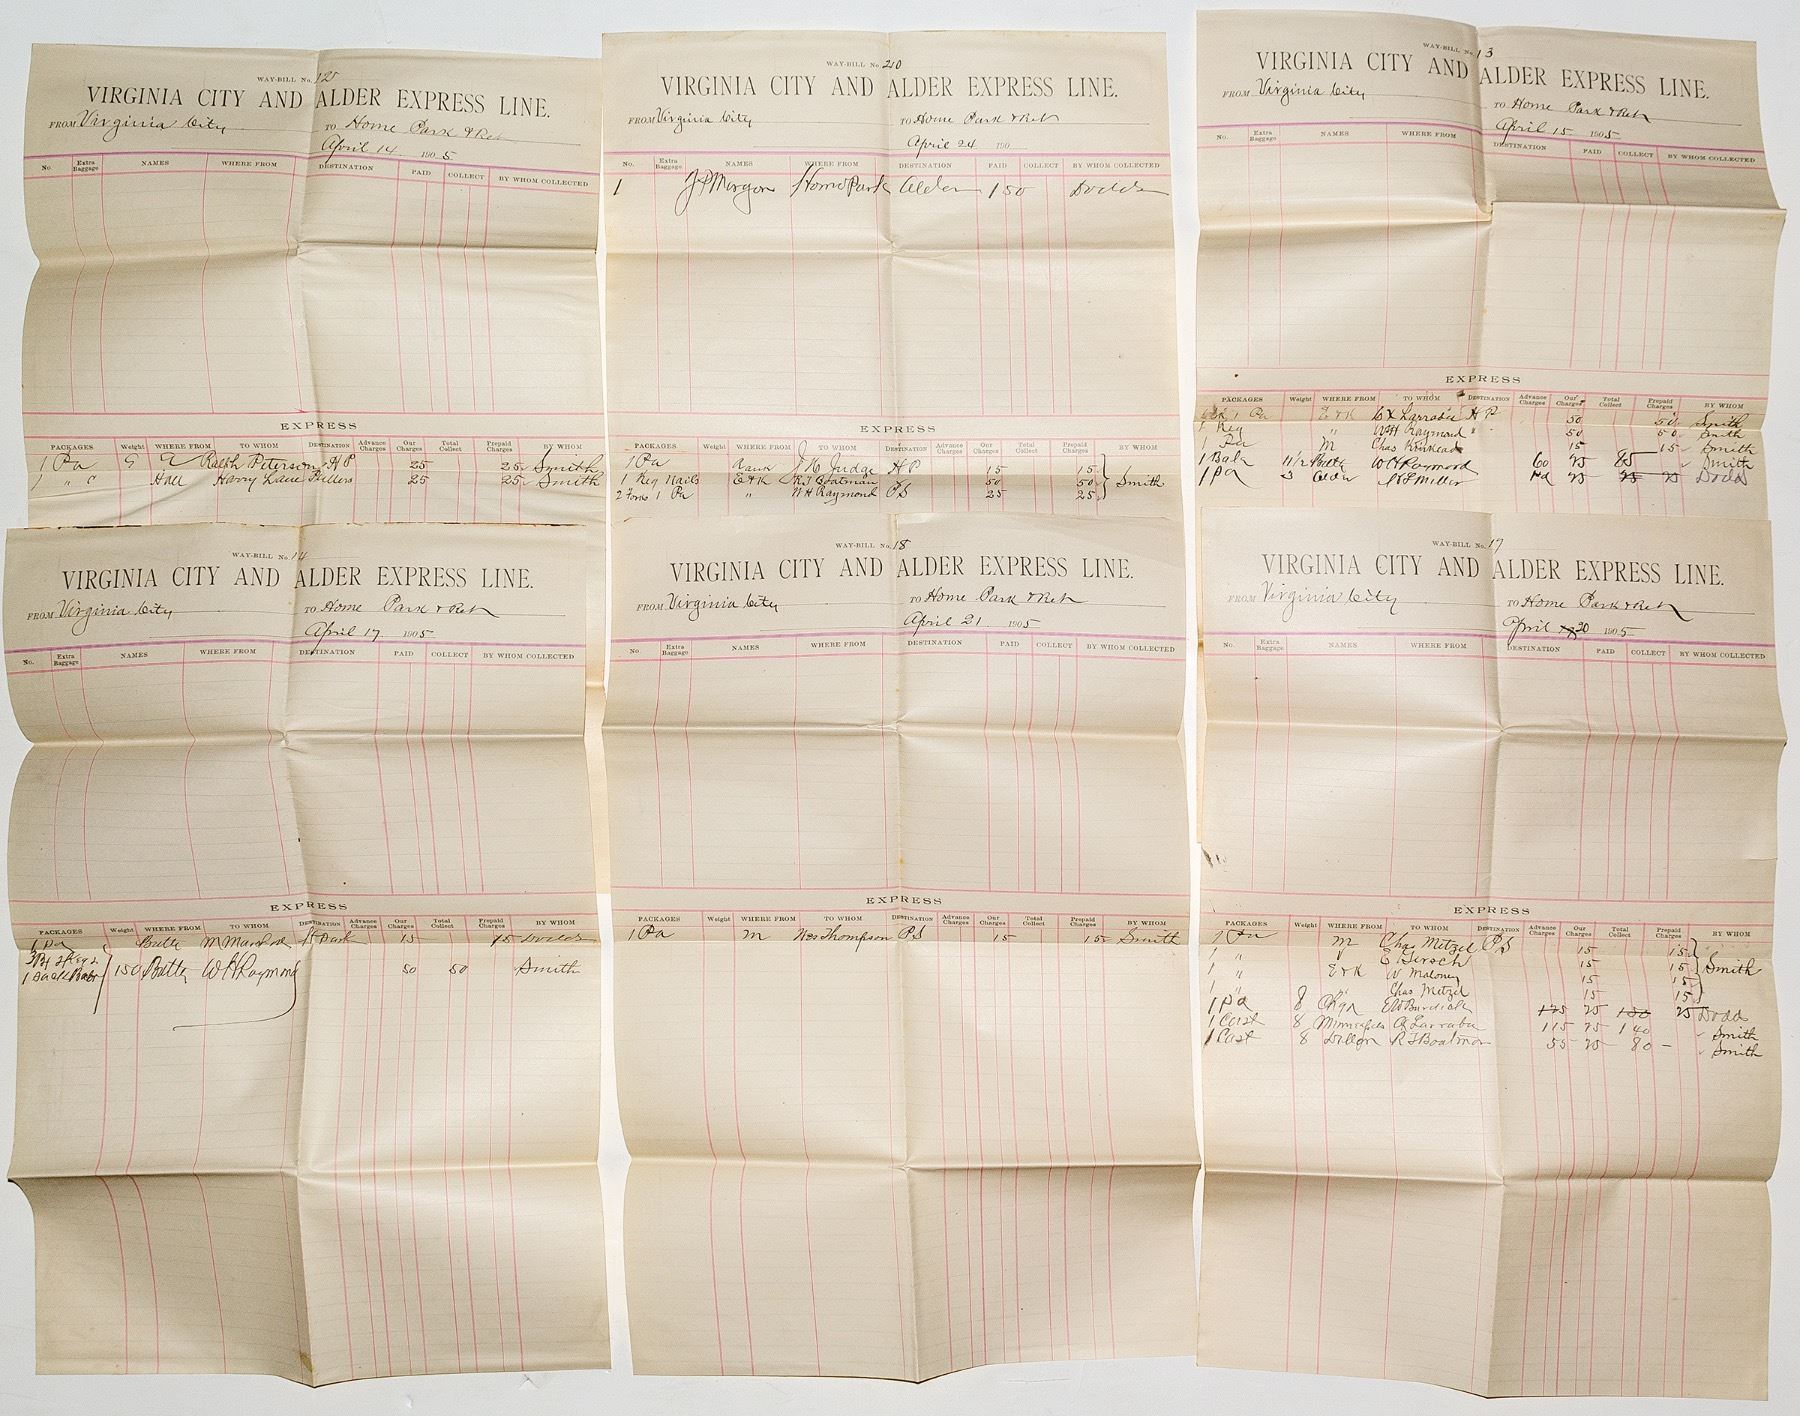 WAY-BILL No. 12
VIRGINIA CITY AND ALDER EXPRESS LINE.
FROM Virginia City TO Home Park & Ret
April 14 1905
No. Extra Baggage NAMES WHERE FROM DESTINATION PAID COLLECT BY WHOM COLLECTED
EXPRESS
PACKAGES Weight WHERE FROM TO WHOM DESTINATION Advance Charges Our Charges Total Collect Prepaid Charges BY WHOM
1 Pa Ralph Peterson H P 25 25 Smith
1 " Hall Harry Lane Pullers 25 25 Smith
WAY-BILL No. 20
VIRGINIA CITY AND ALDER EXPRESS LINE.
FROM Virginia City TO Home Park & Ret
April 24 190
No. Extra Baggage NAMES WHERE FROM DESTINATION PAID COLLECT BY WHOM COLLECTED
1 J P Morgan Home Park Alder 1 50 Dodds
EXPRESS
PACKAGES Weight WHERE FROM TO WHOM DESTINATION Advance Charges Our Charges Total Collect Prepaid Charges BY WHOM
1 Pa J H Judge H P 15 15
1 Keg Nails E & K R T Boatman 50 50 Smith
1 Pa " W H Raymond P S 25 25
WAY-BILL No. 13
VIRGINIA CITY AND ALDER EXPRESS LINE.
FROM Virginia City TO Home Park & Ret
April 15 1905
No. Extra Baggage NAMES WHERE FROM DESTINATION PAID COLLECT BY WHOM COLLECTED
EXPRESS
PACKAGES Weight WHERE FROM TO WHOM DESTINATION Advance Charges Our Charges Total Collect Prepaid Charges BY WHOM
1 Pa E & K Larrabie H P 50 50 Smith
1 Keg " W H Raymond " 50 50 Smith
1 Pa M Chas Kinkead 15 15 Smith
1 Bale 11 1/2 Butte W H Raymond 60 25 85 Smith
1 Pa 5 Alder Miller Pd 25 25 25 Dodd
WAY-BILL No. 14
VIRGINIA CITY AND ALDER EXPRESS LINE.
FROM Virginia City TO Home Park & Ret
April 17 1905
No. Extra Baggage NAMES WHERE FROM DESTINATION PAID COLLECT BY WHOM COLLECTED
EXPRESS
PACKAGES Weight WHERE FROM TO WHOM DESTINATION Advance Charges Our Charges Total Collect Prepaid Charges BY WHOM
1 Pa Butte M 15 15 Dodds
150 Butte W H Raymond 50 50 Smith
WAY-BILL No. 18
VIRGINIA CITY AND ALDER EXPRESS LINE.
FROM Virginia City TO Home Park & Ret
April 21 1905
No. Extra Baggage NAMES WHERE FROM DESTINATION PAID COLLECT BY WHOM COLLECTED
EXPRESS
PACKAGES Weight WHERE FROM TO WHOM DESTINATION Advance Charges Our Charges Total Collect Prepaid Charges BY WHOM
1 Pa M Wes Thompson P S 15 15 Smith
WAY-BILL No. 17
VIRGINIA CITY AND ALDER EXPRESS LINE.
FROM Virginia City TO Home Park & Ret
April 20 1905
No. Extra Baggage NAMES WHERE FROM DESTINATION PAID COLLECT BY WHOM COLLECTED
EXPRESS
PACKAGES Weight WHERE FROM TO WHOM DESTINATION Advance Charges Our Charges Total Collect Prepaid Charges BY WHOM
1 Pa M Chas Metzel P S 15 15
1 " E Hirsch 15 15 Smith
1 " E & K W Maloney 15 15
1 " " Chas Metzel 15 15
1 Pa 8 E W Burdick 125 25 150 25 Dodd
1 8 Minneapolis Larrabie 115 25 140 Smith
1 8 Dillon R T Boatman 55 25 80 Smith